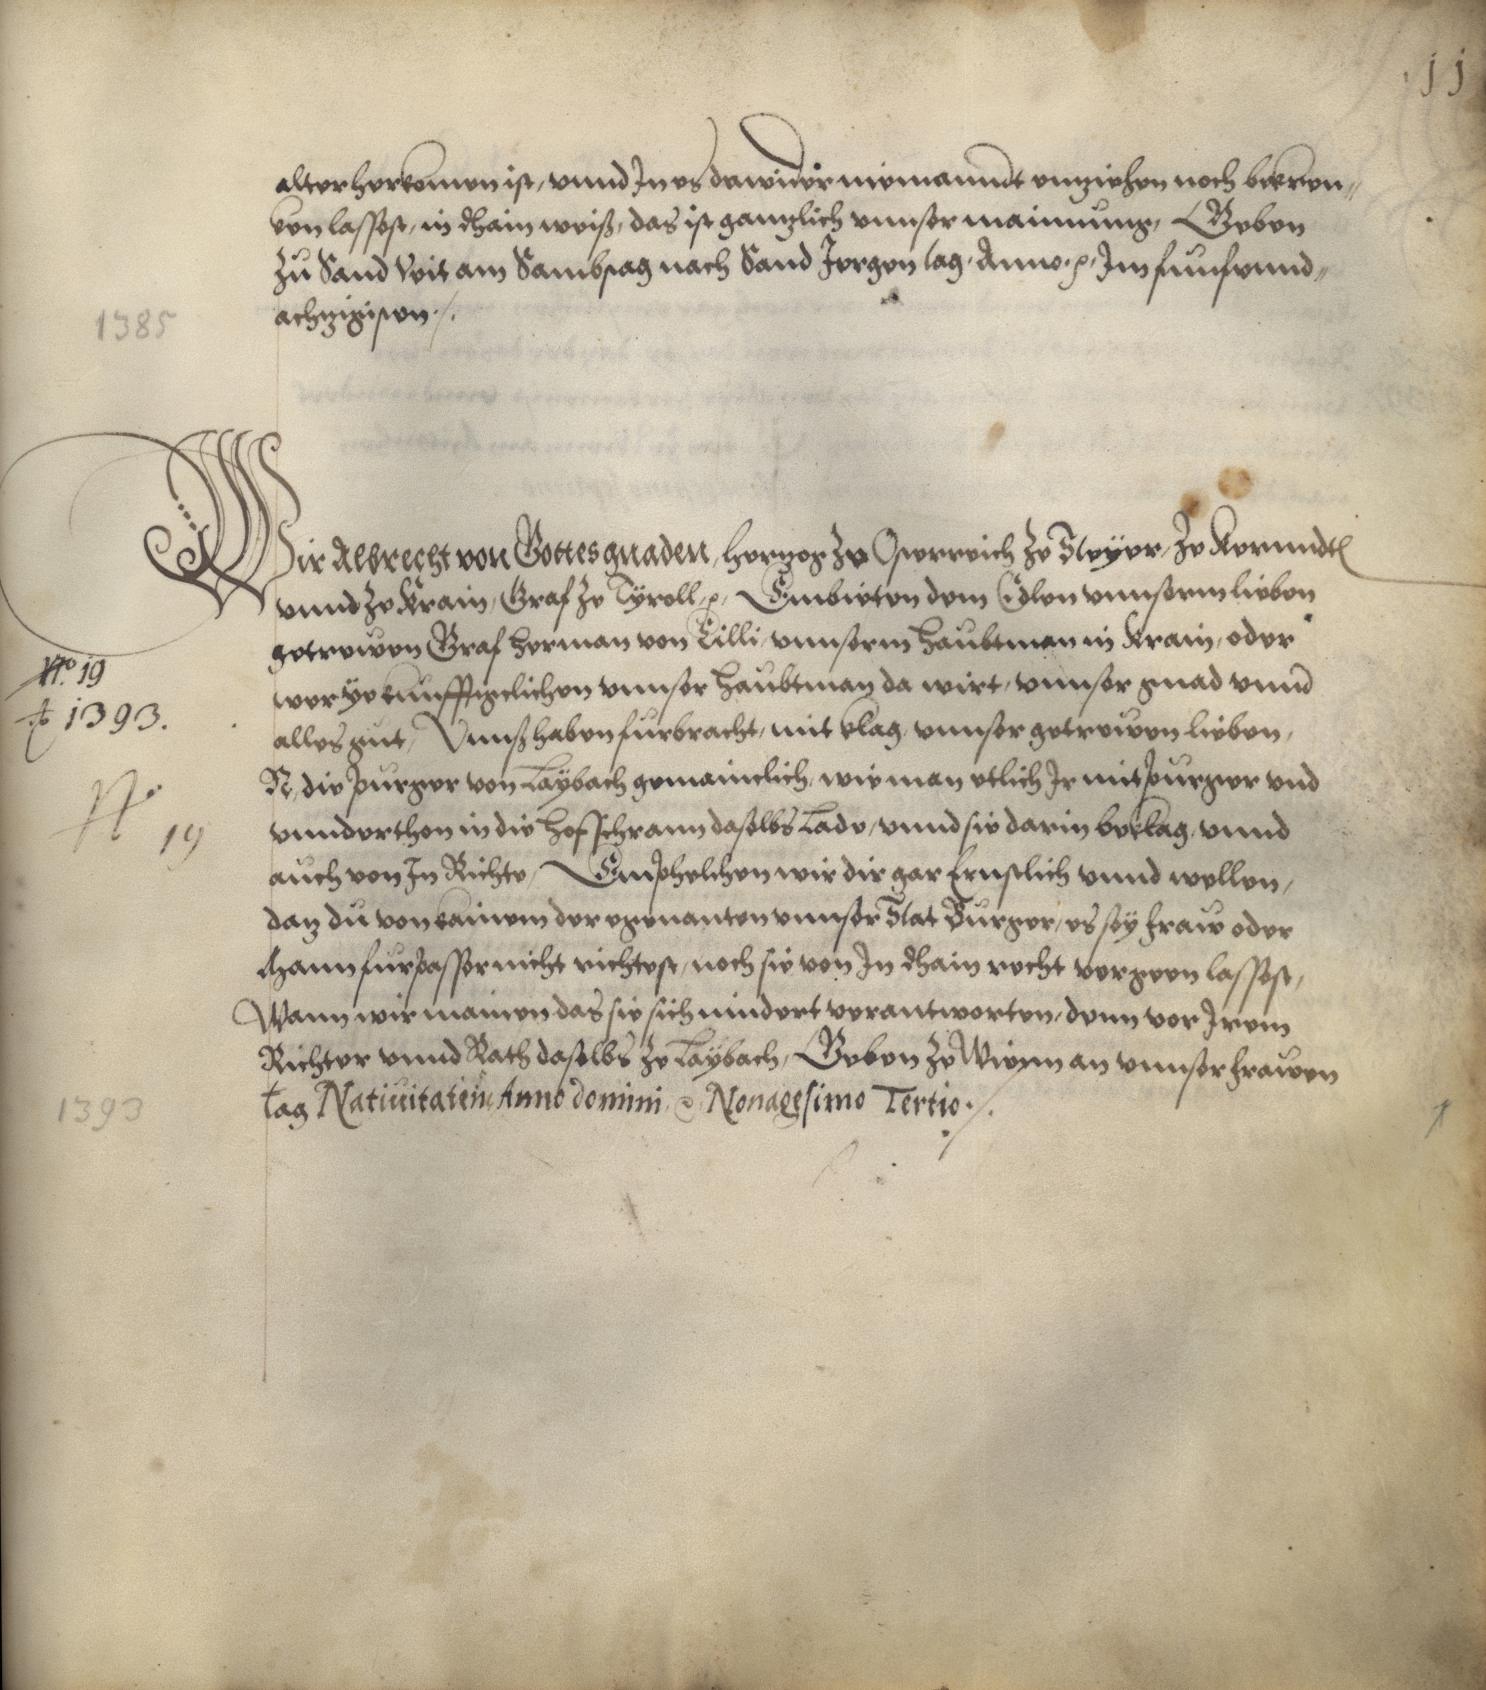 11
alter herkomen ist, vnnd In es dawider niemanndt enziehen noch bekren„
ken lassest, in dhain weiß, das ist genzlich vnnser mainnung, Geben
Zu Sand Veit am Sambstag nach Sand Jergen tag, Anno. p. Im funfvnnd„
achzigisten ./.
1385
Wir Albrecht von Gottes gnaden, Herzog Ze Osterreich Ze Steyer, Ze Kernndten
vnnd Ze Krain, Graf Ze Tyroll, p, Embieten dem Edlen vnnserm lieben
getrewen Graf Herman von Cilli, vnnserm Haubtman in Krain, oder
No. 19
wer ye kunfftigclichen vnnser Haubtman da wirt, vnnser gnad vnnd
1393.
alles gut, Vnnß haben furbracht, mit klag, vnnser getrewen lieben,
N. die purger von Laybach gemainclich, wie man etlich Ir mitpurger vnd
No. 19
vnnderthen in die hofschrann daselbs Lade, vnnd sie darin beklag, vnnd
auch von In Richte, Emphelchen wir dir gar Ernstlich vnnd wellen,
daz du von kainem der egenanten vnnser Stat Burger, es sey fraw oder
Mann furbasser nicht richtest, noch sie von In dhain recht vergeen lassest,
Wann wir mainen das sie sich nindert verantworten, denn vor Irem
Richter vnnd Rath daselbs Ze Laybach, Geben Ze Wienn an vnnser frawen
tag Natiuitatem Anno domini Nonagesimo Tertio ./.
1393